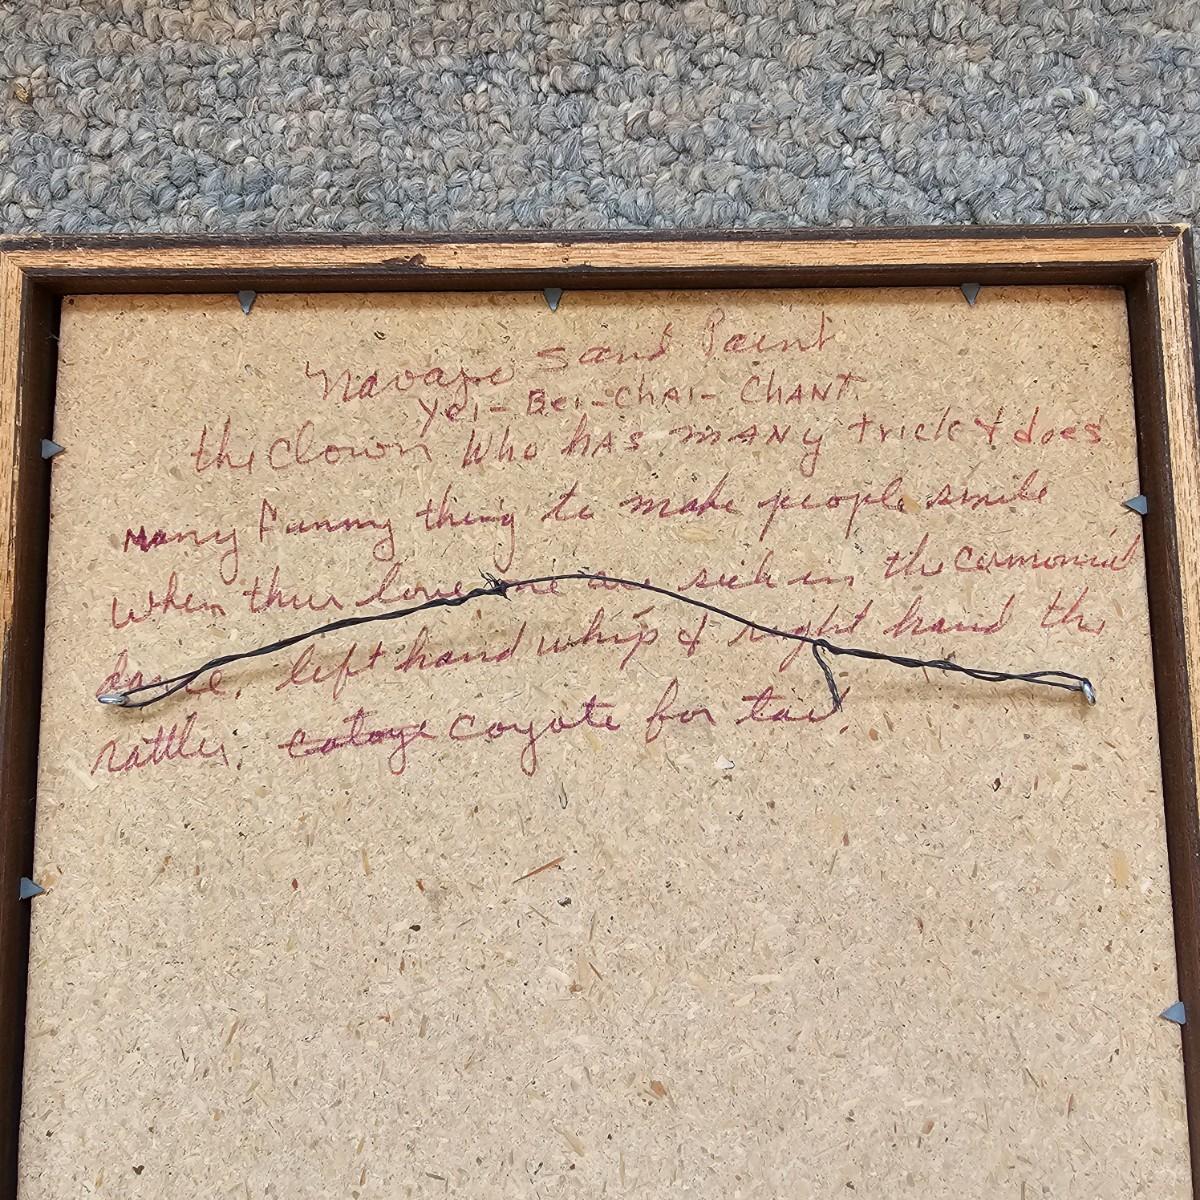 Navajo Sand Paint
Yei-Bei-Chai-Chant.
the Clown Who has many trick & does
many Funny thing to make people smile
When their love one are sick in the cermonial
dance. left hand whip & right hand the
rattles. catoye coyote for tail.